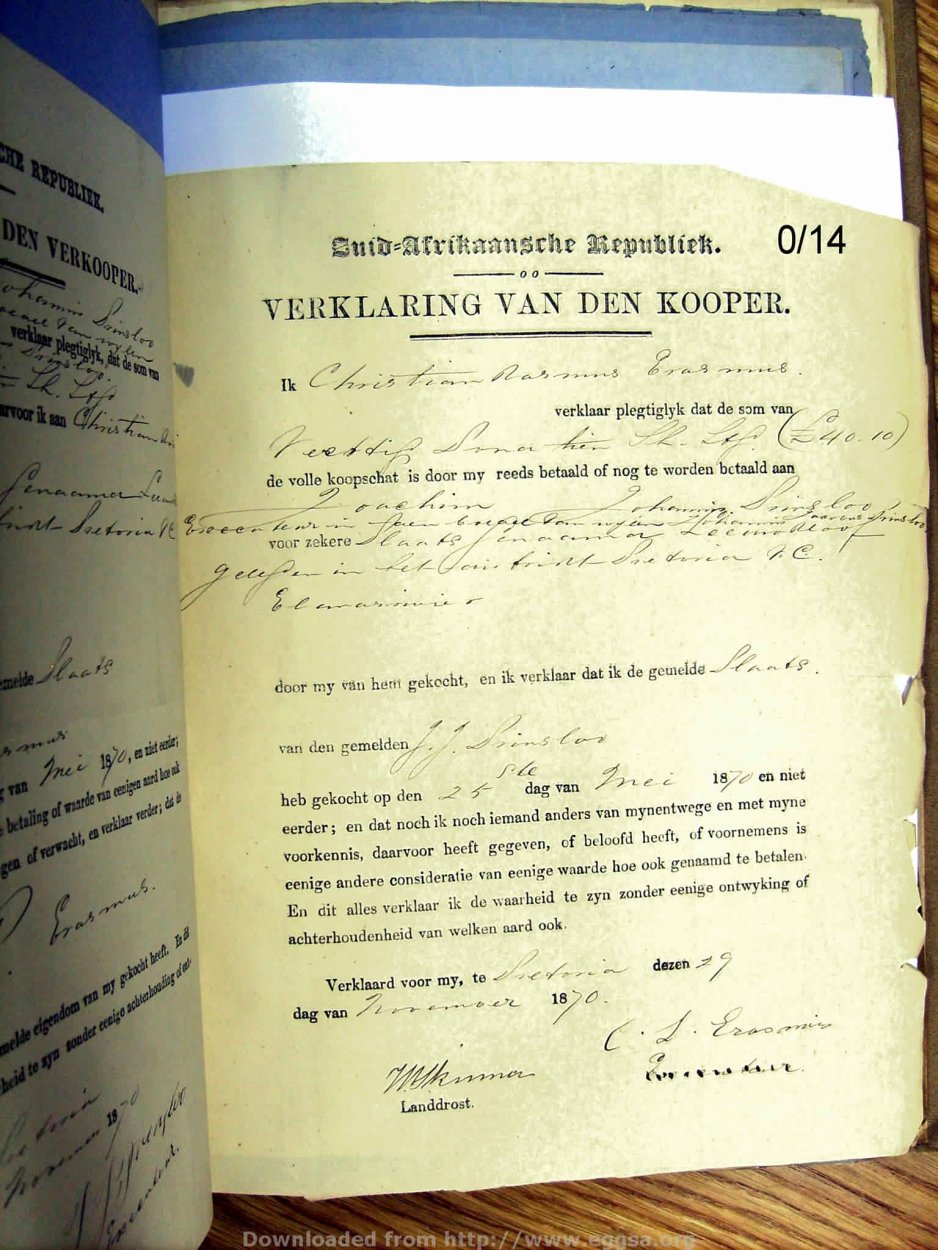 CHE REPUBLIEK.
DEN VERKOOPER.
verklaar plegtiglyk, dat de som van
arvoor ik aan Christian
genaamd
Pretoria
emelde Plaats
van Mei 1870, en niet eerder;
betaling of waarde van eenigen aard hoe ook
gen of verwacht, en verklaar verder; dat de
Erasmus.
melde eigendom van my gekocht heeft. En dit
heid te zyn zonder eenige achterhouding of ont-
Pretoria
November 1870
Zuid-Afrikaansche Republiek. 0/14
VERKLARING VAN DEN KOOPER.
Ik Christian Rasmus Erasmus.
verklaar plegtiglyk dat de som van
Veertig Pond tien Sh. Stg. (£40.10)
de volle koopschat is door my reeds betaald of nog te worden betaald aan
Joachim Johannis Prinsloo
Executeur in den boedel van wylen Johannis Prinsloo
voor zekere Plaats genaamd Leeuwkloof
gelegen in het district Pretoria
door my van hem gekocht, en ik verklaar dat ik de gemelde Plaats.
van den gemelden J. J. Prinsloo
heb gekocht op den 25ste dag van Mei 1870 en niet
eerder; en dat noch ik noch iemand anders van mynentwege en met myne
voorkennis, daarvoor heeft gegeven, of beloofd heeft, of voornemens is
eenige andere consideratie van eenige waarde hoe ook genaamd te betalen.
En dit alles verklaar ik de waarheid te zyn zonder eenige ontwyking of
achterhoudenheid van welken aard ook.
Verklaard voor my, te Pretoria dezen 29
dag van November 1870.
Erasmus
WSkinner
Landdrost.
Downloaded from http://www.eggsa.org